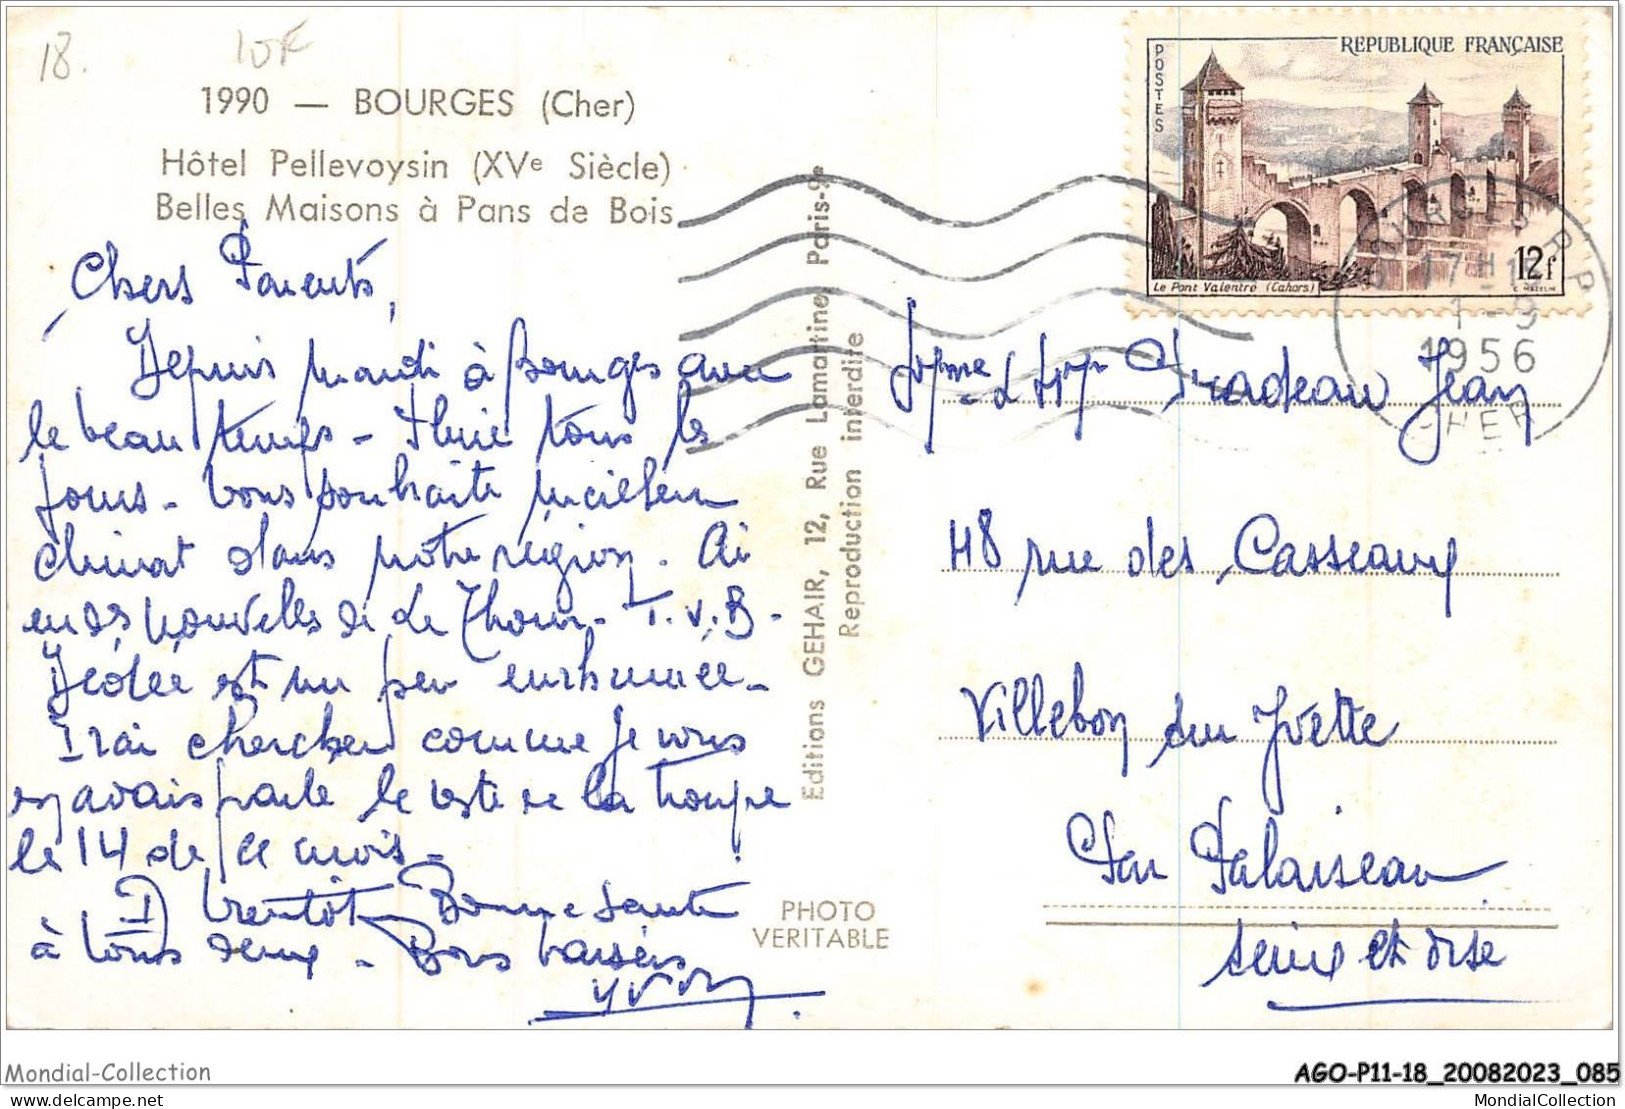 18.
10F
1990 — BOURGES (Cher)
Hôtel Pellevoysin (XVe Siècle)
Belles Maisons à Pans de Bois
Chers Parents,
Depuis mardi à Bourges avec
le beau temps - Pluie tous les
jours - Vous souhaite meilleur
climat dans votre région. Ai
eu des nouvelles de Le Thour - T.V.B -
est un peu enrhumée -
Irai chercher comme je vous
en avais parlé le reste de la troupe
le 14 de ce mois -
A bientôt Bonne santé
à vous deux - Bons baisers
Yvon
Editions GEHAIR, 12, Rue Lamartine, Paris-9e
Reproduction interdite
PHOTO
VERITABLE
REPUBLIQUE FRANÇAISE
POSTES
Le Pont Valentré (Cahors)
12f
BOURGES R.P
17H
1-9
1956
CHER
Mme & Mr Pradeau Jean
48 rue des Casseaux
Villebon sur Yvette
Par Palaiseau
Seine et Oise
Mondial-Collection
AGO-P11-18_20082023_085
delcampe.net
MondialCollection